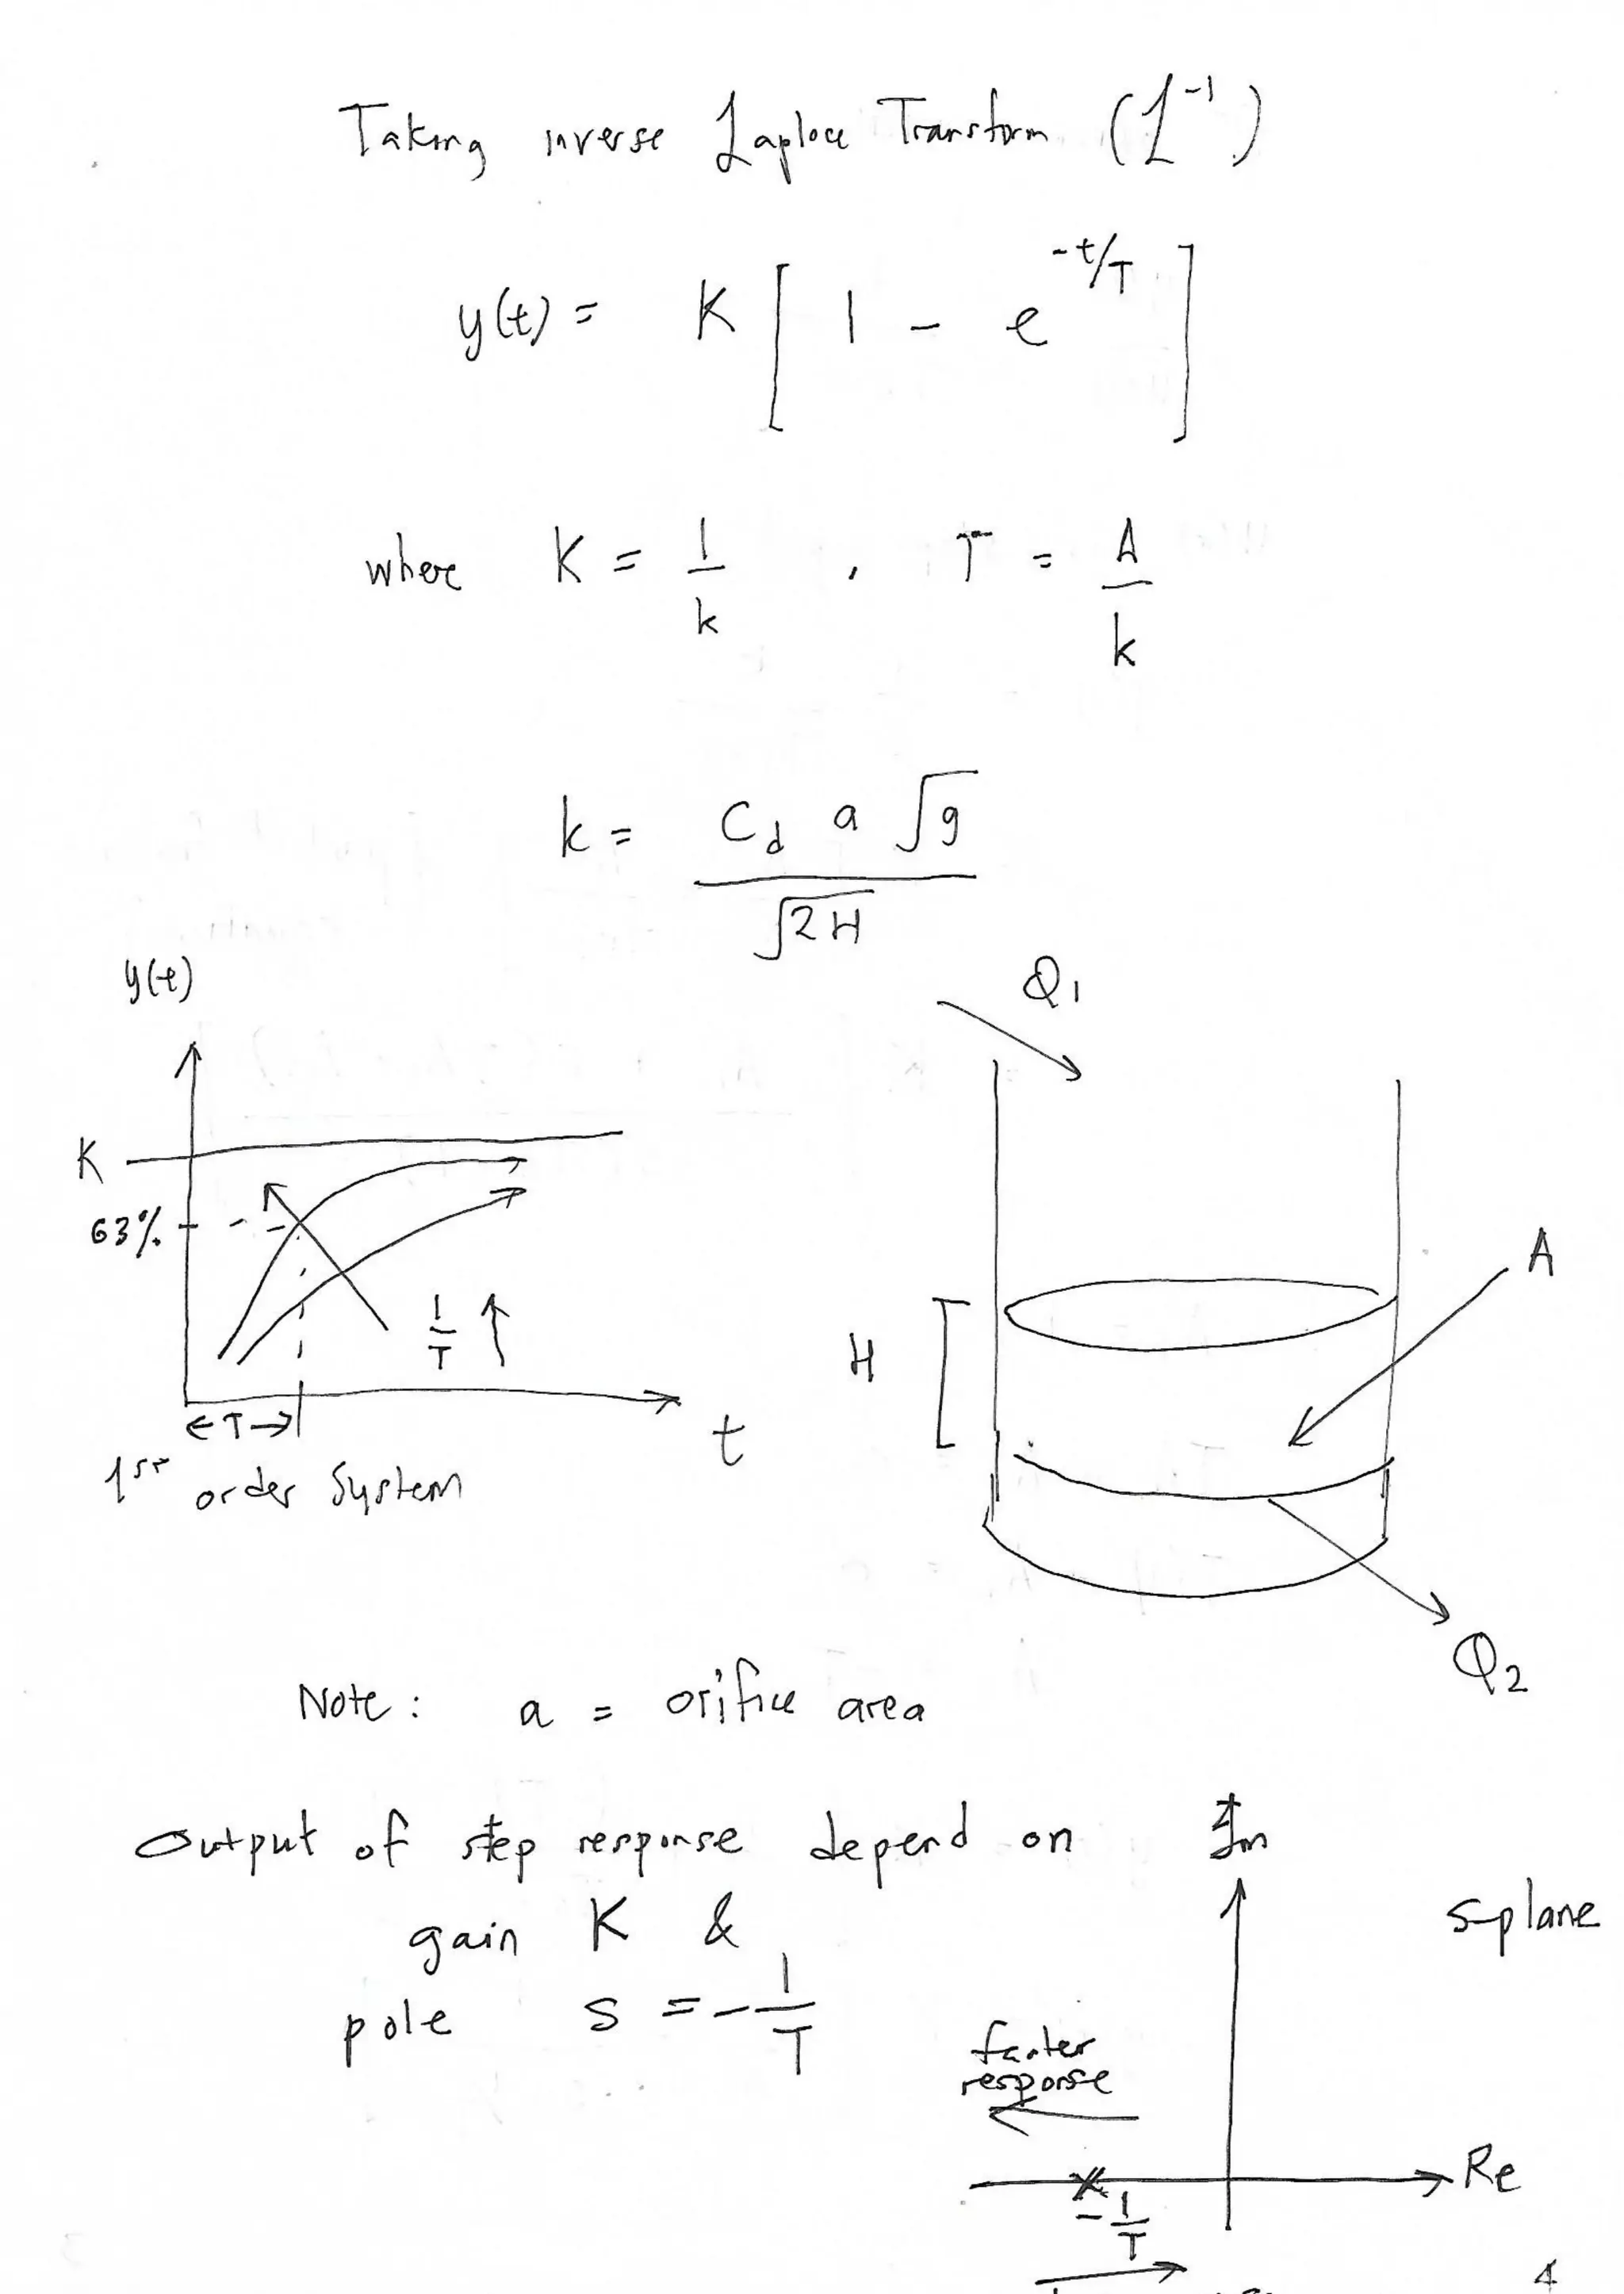 Taking inverse Laplace Transform (L⁻¹)
y(t) = K [ 1 - e^(-t/T) ]
where K = 1/k , T = A/k
k = Cd a √g / √2H
y(t)
K
63%
1/T ↑
← T →
t
1st order System
Q1
A
H
Q2
Note: a = orifice area
Output of step response depend on
gain K &
pole s = -1/T
Im
s-plane
faster
response
Re
-1/T
4